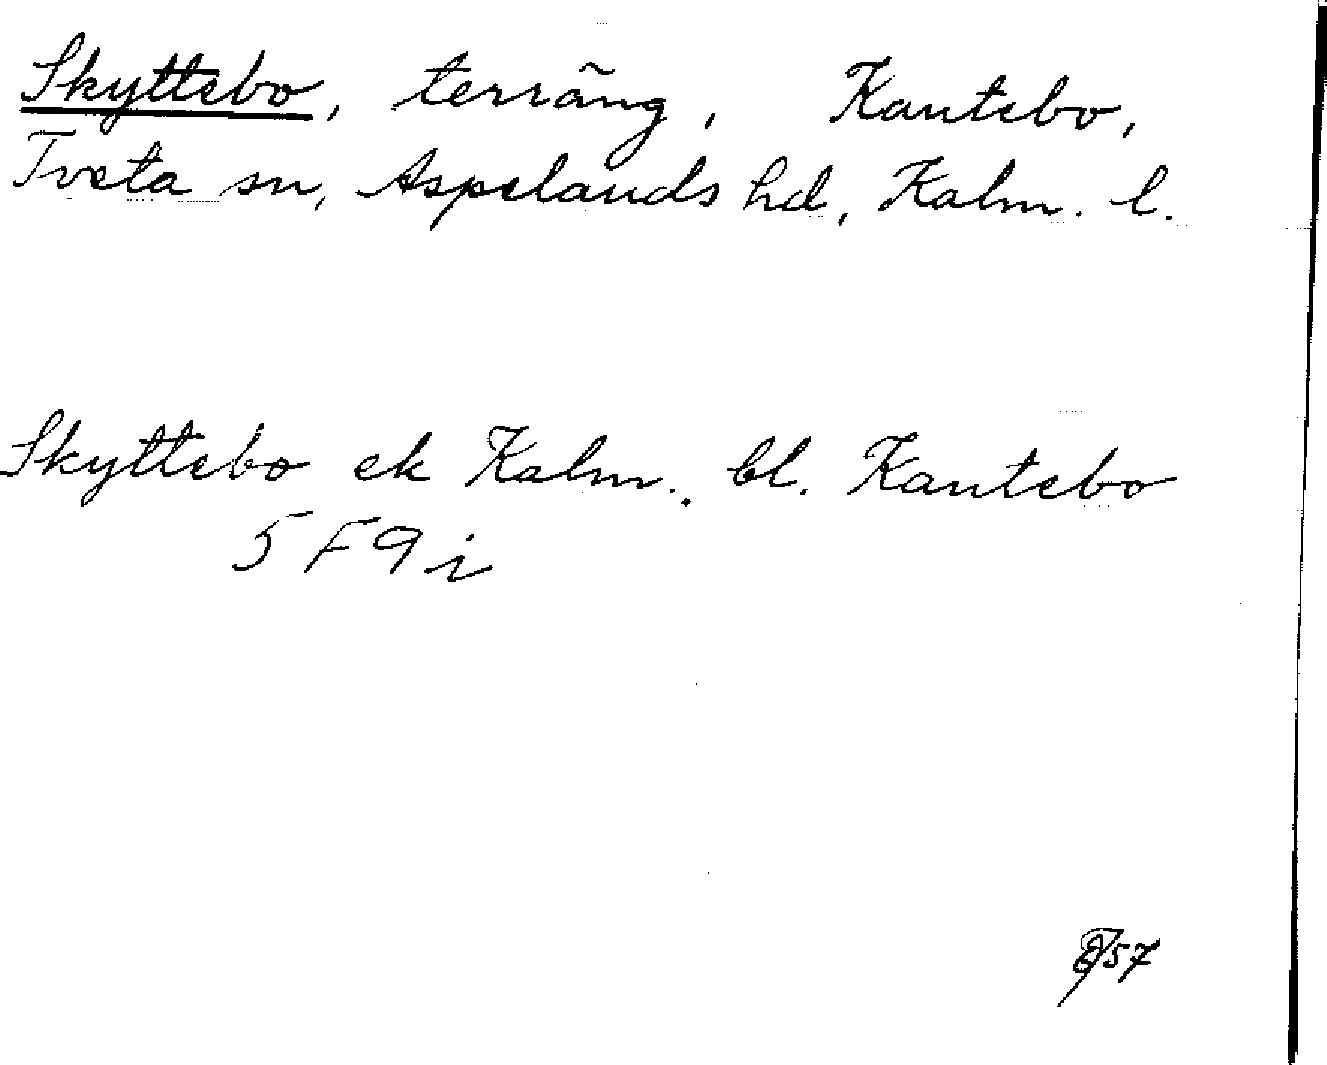 Skyttebo, terräng, Kantebo,
Tveta sn, Aspelands hd, Kalm. l.
Skyttebo ek Kalm. bl. Kantebo
5F9i
57